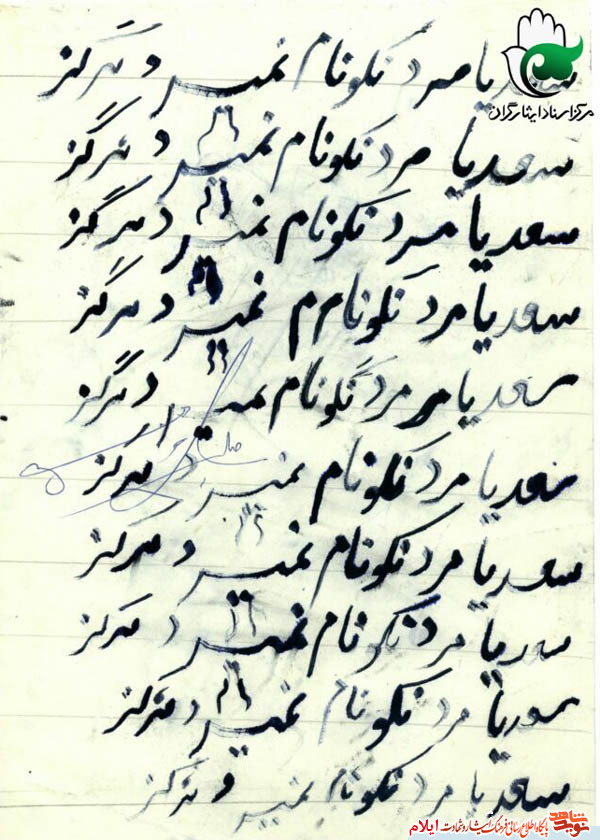 مرکز اسناد ایثارگران
سعدیا مرد نکونام نمیرد هرگز
سعدیا مرد نکونام نمیرد هرگز
سعدیا مرد نکونام نمیرد هرگز
سعدیا مرد نکونام م نمیرد هرگز
سعدیا مر مرد نکونام نمیرد هرگز
سعدیا مرد نکونام نمیرد هرگز
سعدیا مرد نکونام نمیرد هرگز
سعدیا مرد نکونام نمیرد هرگز
سعدیا مرد نکونام نمیرد هرگز
سعدیا مرد نکونام نمیرد هرگز
نوید شاهد پایگاه اطلاع رسانی فرهنگ ایثار و شهادت ایلام